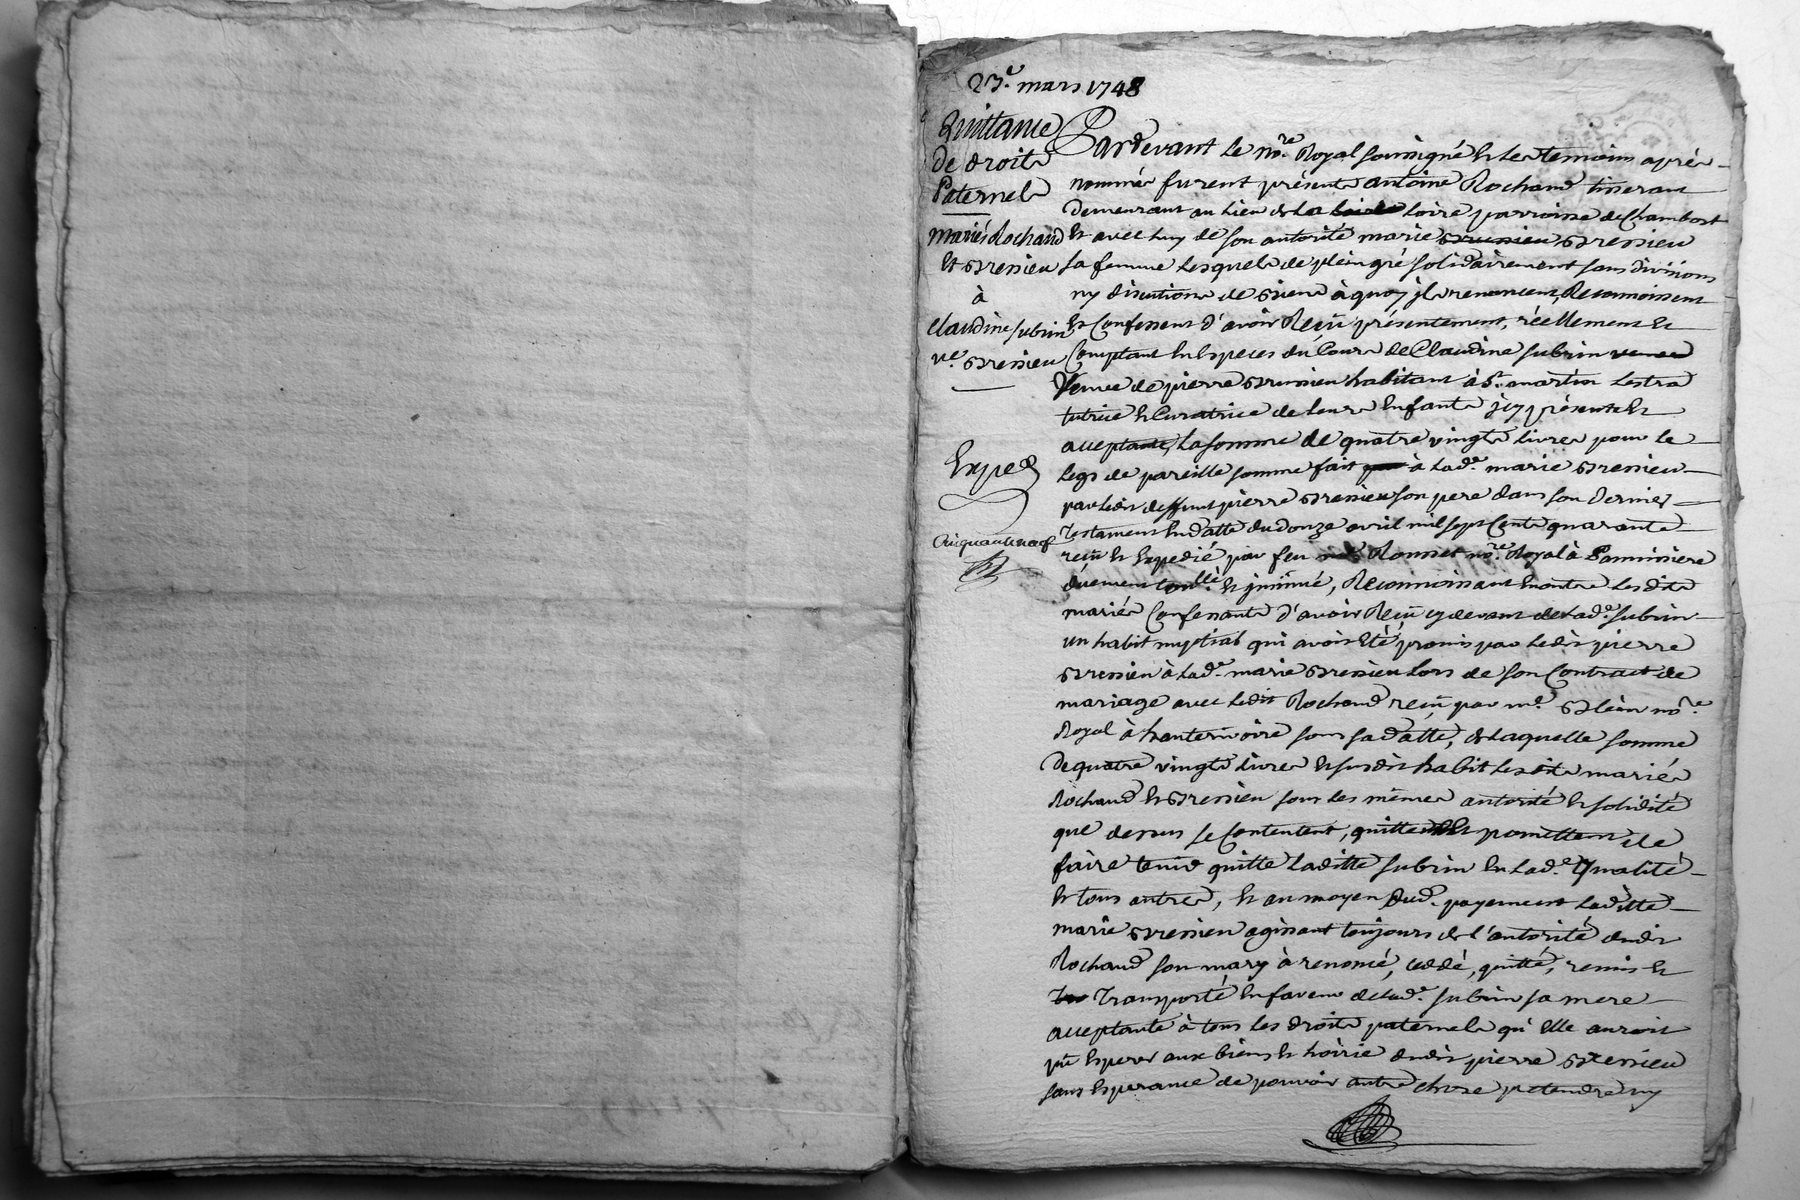 23.e mars 1748
Quittance
de droits
Paternels
mariés Rochand
et Bressieu
à
Claudine subrin
ve. Bressieu
Exped
Cinquante neuf
Pardevant le nore. Royal soussigné et les temoins aprés
nommés furent présents antoine Rochand tisserant
demeurant au lieu de la loire parroisse de Chambost
et avec luy de son autorité marie Bressieu
sa femme lesquels de plein gré solidairement sans divisions
ny discutions de biens à quoy ils renoncent, Reconnoissent
et Confessent d'avoir Reçû présentement, réellement et
Comptant en Especes du Cours de Claudine subrin
Veuve de pierre Bressieu habitant à St. martin Lestra
tutrice et Curatrice de leurs Enfants icy présente et
acceptante, la somme de quatre vingts livres pour le
legs de pareille somme fait à lade. marie Bressieu
par ledit deffunt pierre Bressieu son pere dans son dernier
Testament en datte du onze avril mil sept Cents quarante
reçû et Expedié par feu Me Ronnet nore. Royal à Pannissiere
düement Conllé. et insinué, Reconnoissant en outre lesdits
mariés Confessants d'avoir Reçû cy devant de lade. subrin
un habit nuptial qui avoit Eté promis par ledit pierre
Bressieu à lade. marie Bressieu lors de son Contract de
mariage avec ledit Rochand reçû par me. nore.
Royal à hauterivoire sous sa datte, de laquelle somme
de quatre vingts livres et susdit habit lesdits mariés
Rochand et Bressieu sous les mêmes autorité et solidité
que dessus se Contentent, quittent et promettent de
faire tenir quitte laditte subrin en lade. Qualité
et tous autres, et au moyen dud. payement laditte
marie Bressieu agissant toujours de l'autorité dudit
Rochand son mary à renoncé, cedé, quitté, remis et
Transporté en faveur de lade. subrin sa mere
acceptante à tous les droits paternels qu'Elle auroit
pû Esperer aux biens et hoirie dudit pierre Bressieu
sans Esperance de pouvoir autre chose pretendre ny